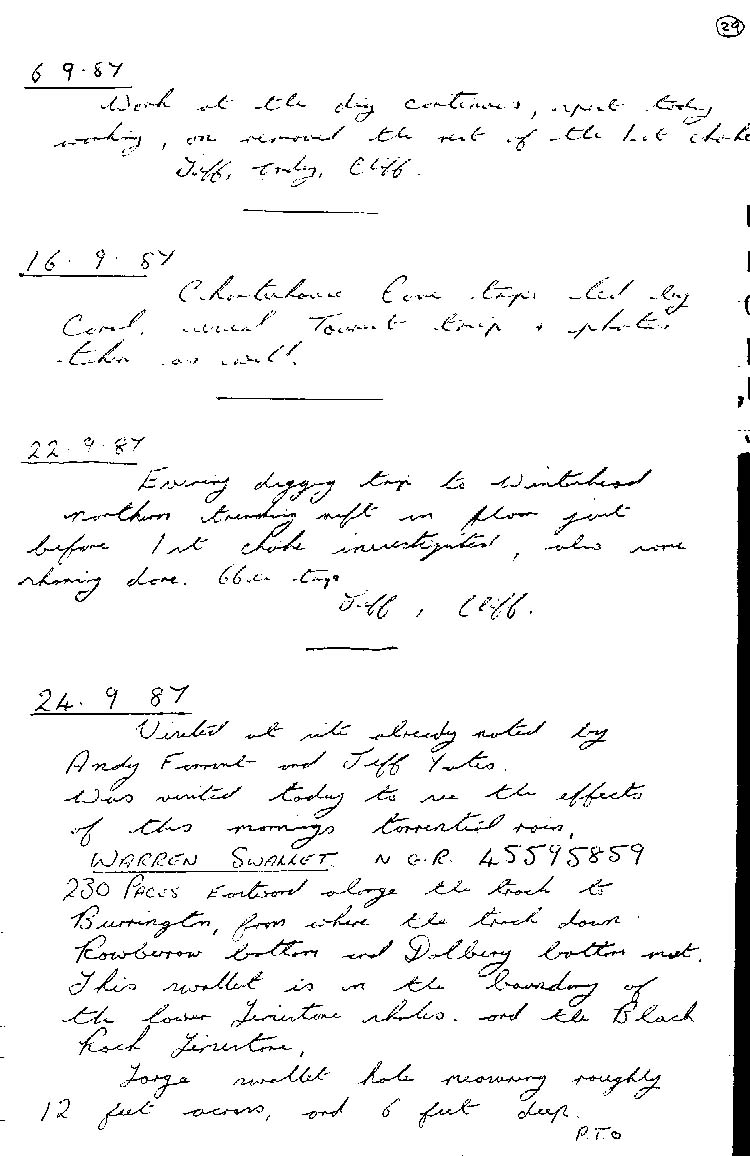 29
6 9.87
Work at the dig continues, spent today
working, on removed the rest of the 1st choke
Jeff, Andy, Cliff.
16.9.87
Charterhouse Cave trip led by
Carol, usual Tourist trip + photos
taken as well.
22.9.87
Evening digging trip to Winterhead
northern trending rift in floor just
before 1st choke investigated, also some
shoring done. trip
Jeff, Cliff.
24.9 87
Visited at site already noted by
Andy Farrant and Jeff Yates.
Was visited today to see the effects
of this mornings torrential rain,
WARREN SWALLET N G.R. 45595859
230 PACES Eastward alonge the track to
Burrington, from where the track down
Rowberrow bottom and Dolbery bottom meet.
This swallet is in the boundary of
the lower Limestone shales. and the Black
Rock Limestone,
Large swallet hole measuring roughly
12 feet across, and 6 feet deep.
P.T.O